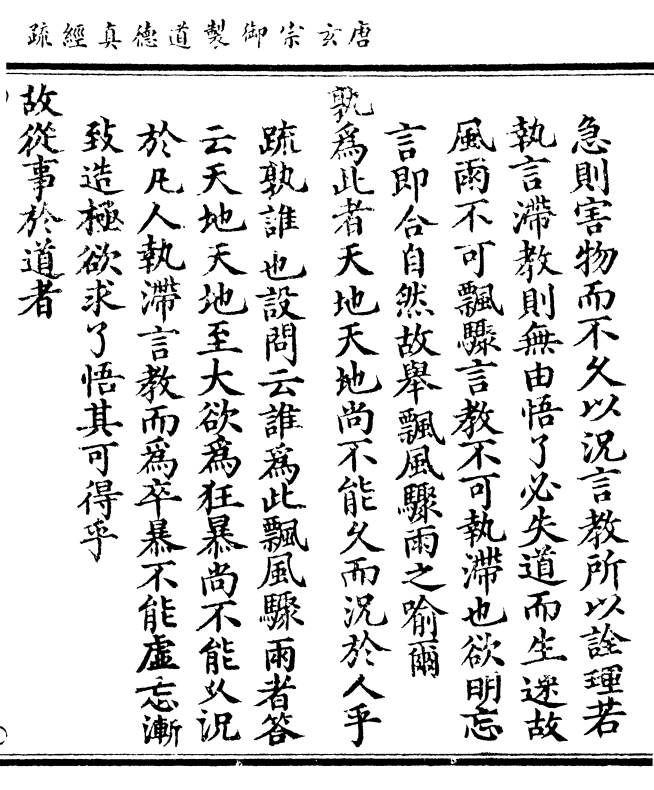 唐玄宗御製道德真經疏
急則害物而不久以況言教所以詮理若
執言滯教則無由悟了必失道而生迷故
風雨不可飄驟言教不可執滯也欲明忘
言即合自然故舉飄風驟雨之喻爾
孰爲此者天地天地尚不能久而況於人乎
疏孰誰也設問云誰爲此飄風驟雨者答
云天地天地至大欲爲狂暴尚不能久況
於凡人執滯言教而爲卒暴不能虛忘漸
致造極欲求了悟其可得乎
故從事於道者